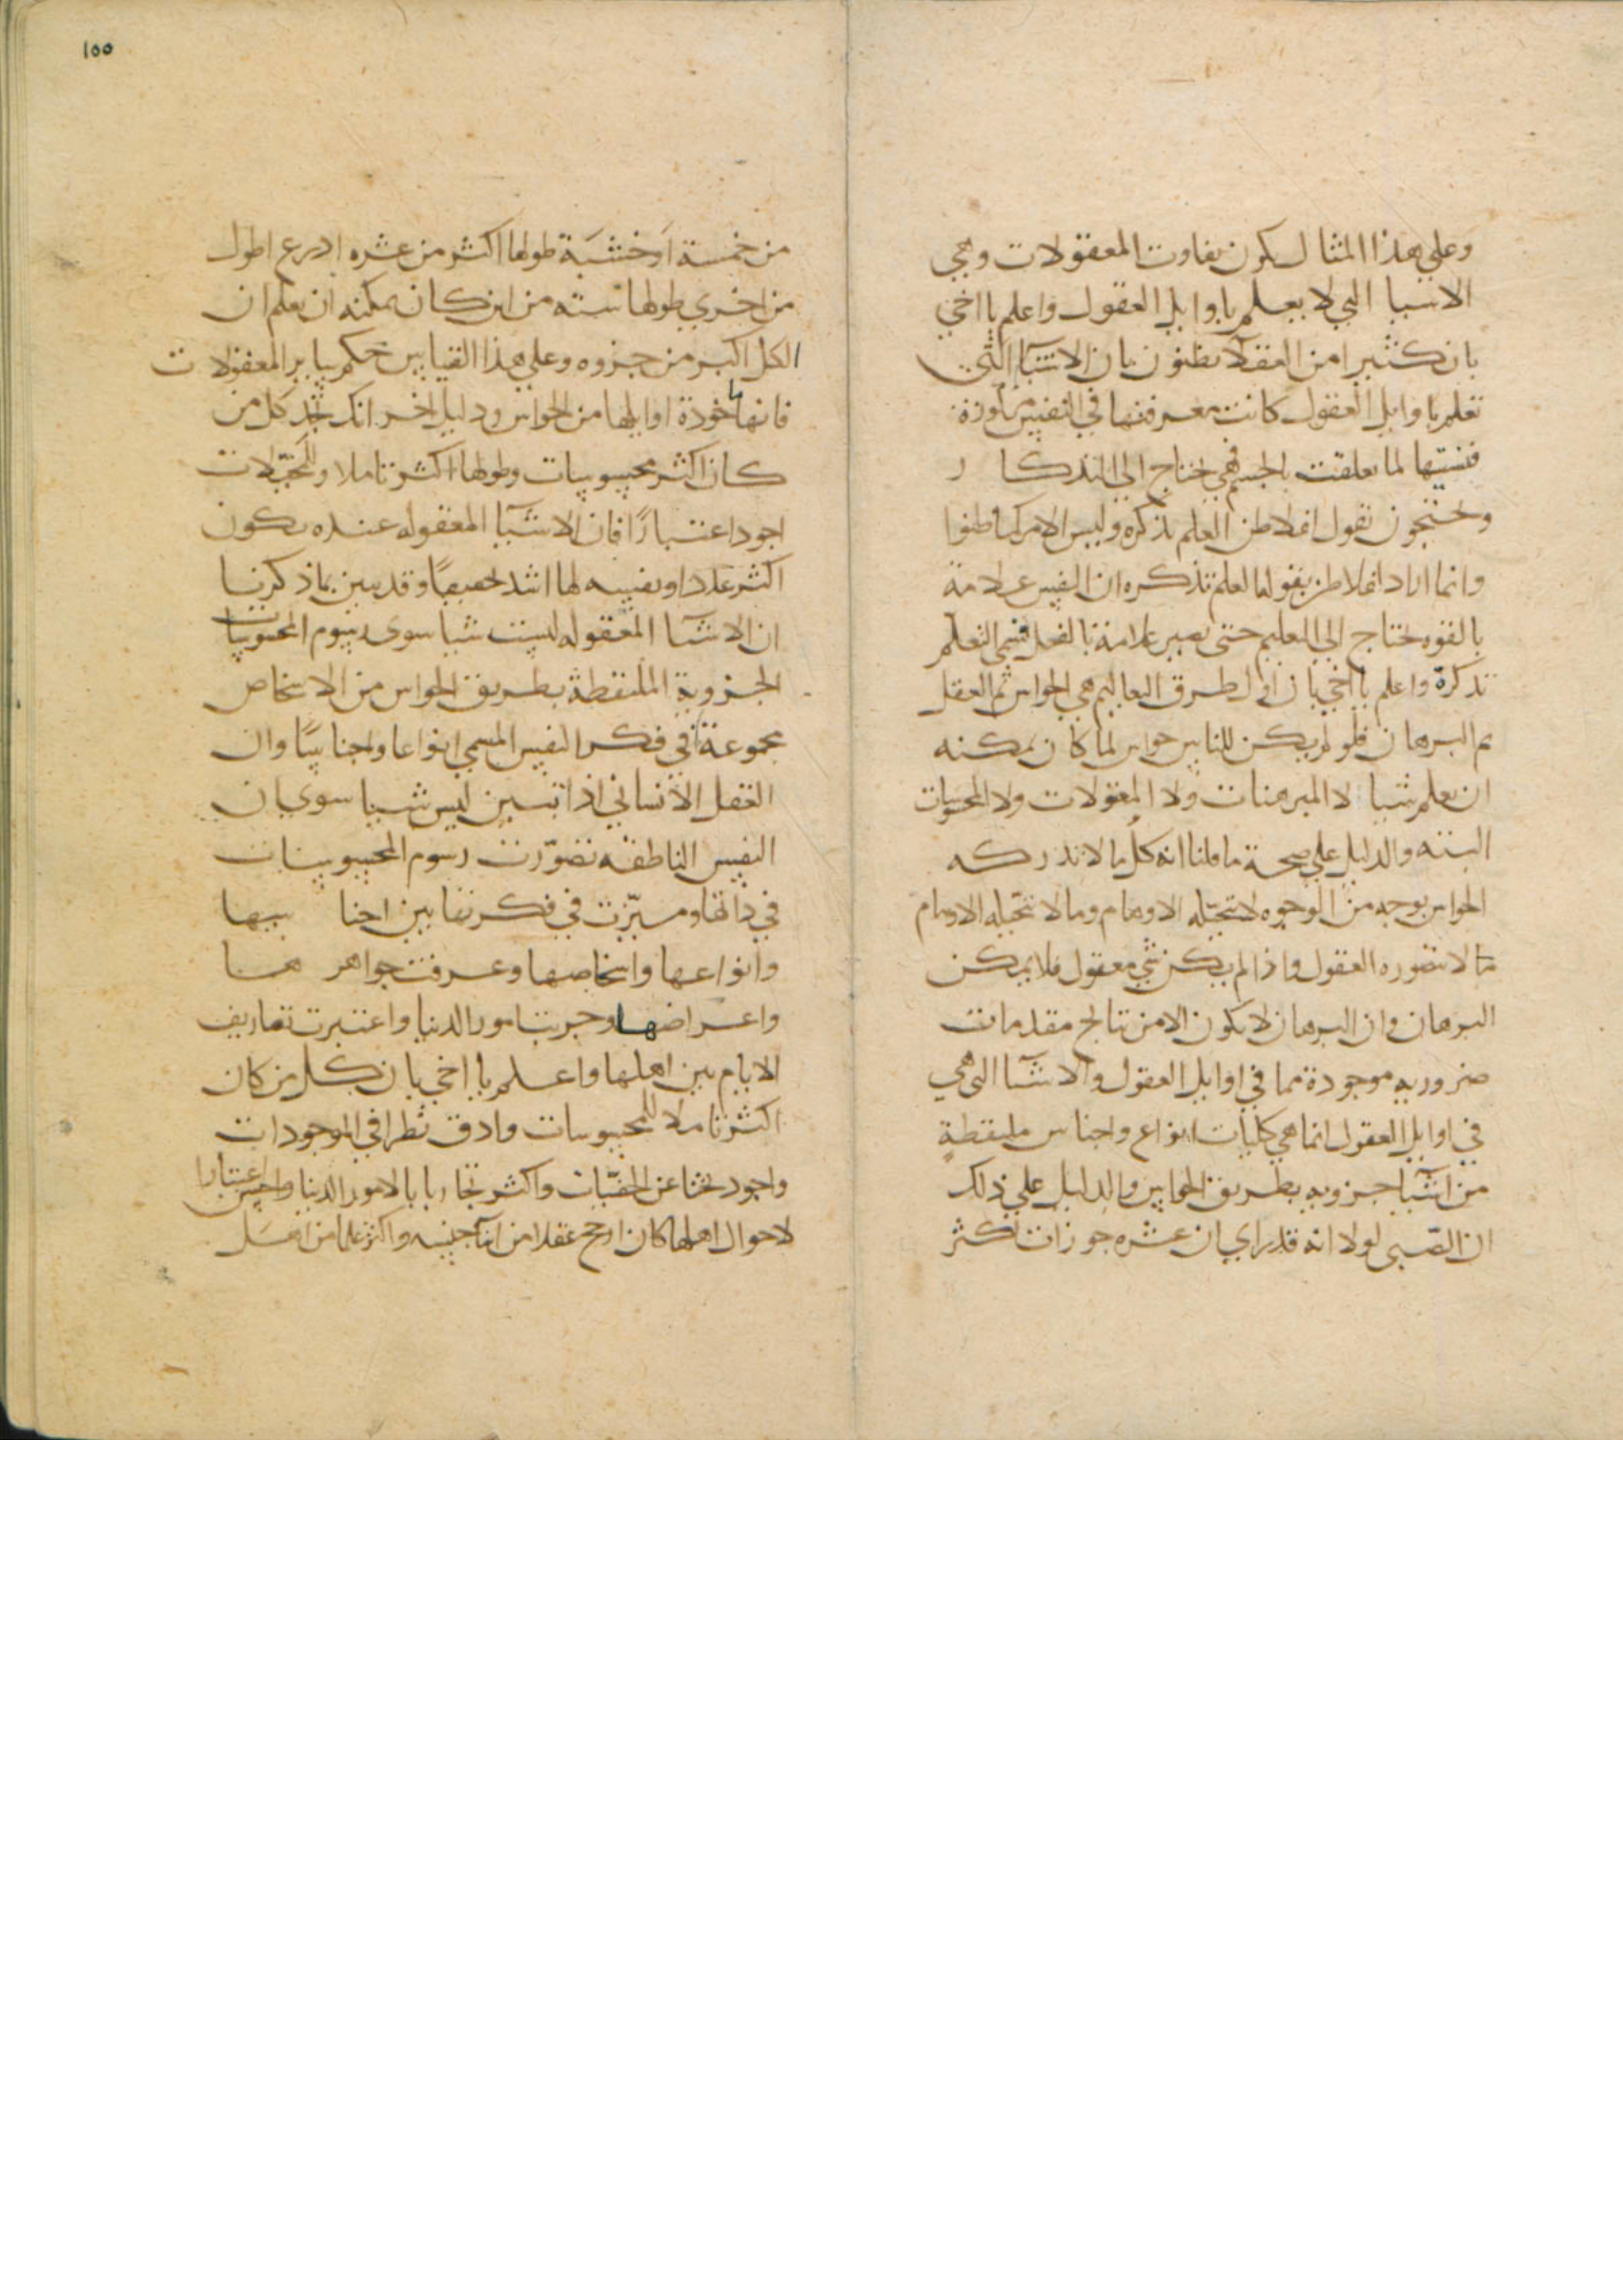 وعلي هذا المثال يكون تفاوت المعقولات وهي
الاشيا التي لا يعلم باوايل العقول واعلم يا اخي
بان كثيرا من العقلآ يظنون بان الاشيآ التي
تعلم باوايل العقول كانت معرفتها في النفس مركوزة
فنسيتها لما تعلقت بالجسم فهي تحتاج الي التذكا ر
ويحتجون بقول افلاطن العلم تذكره وليس الامر كما ظنوا
وانما اراد افلاطن بقوله العلم تذكره ان النفس علامة
بالقوه تحتاج الي التعليم حتي تصير علامة بالفعل فسمي التعلم
تذكرة واعلم يا اخي بان اول طرق التعاليم هي الحواس ثم العقل
ثم البرهان فلو لم يكن للناس حواس لما كان يمكنه
ان يعلم شيا لا المبرهنات ولا المعقولات ولا المحسوسات
البته والدليل علي صحة ما قلنا انه كل ما لا تدركه
الحواس بوجه من الوجوه لا تتخيله الاوهام وما لا تتخيله الاوهام
لا تتصوره العقول واذا لم يكن شي معقول فلا يمكن
البرهان وان البرهان لا يكون الا من نتايج مقدمات
ضروريه موجودة مما في اوايل العقول والاشيآ التي هي
في اوايل العقول انما هي كليات انواع واجناس ملتقطة
من اشيآ جزويه بطريق الحواس والدليل علي ذلك
ان الصبي لولا انه قد راي ان عشره جوزات اكثر
١٥٥
من خمسة او خشبة طولها اكثر من عشره اذرع اطول
من اخري طولها سته من اين كان يمكنه ان يعلم ان
الكل اكبر من جزوه وعلي هذا القياس حكم ساير المعقولات
فانها ماخوذة اوايلها من الحواس ودليل اخر انك تجد كل من
كان اكثر محسوسات وطولها اكثر تاملا وللمتخيلات
اجود اعتبارًا فان الاشيآ المعقوله عنده يكون
اكثر عددا ونفسه لها اشد تحقيقًا وقد تبين بما ذكرنا
ان الاشيآ المعقوله ليست شيا سوي رسوم المحسوسات
الجزوية الملتقطة بطريق الحواس من الاشخاص
مجموعة في فكر النفس المسمي انواعا واجناسًا وان
العقل الانساني اذا تبين ليس شيا سوي ان
النفس الناطقه تصوّرت رسوم المحسوسات
في ذاتها وميّزت في فكرتها بين اجنا سها
وانواعها واشخاصها وعرفت جواهر ها
واعراضها وجربت امور الدنيا واعتبرت تصاريف
الايام بين اهلها واعلم يا اخي بان كل من كان
اكثر تاملا للمحسوسات وادق نظرا في الموجودات
واجود بحثا عن الخفيّات واكثر تجاربا بالامور الدنيا واحسن اعتبارا
لاحوال اهلها كان ارجح عقلا من ابنآ جنسه واكثر علما من اهل